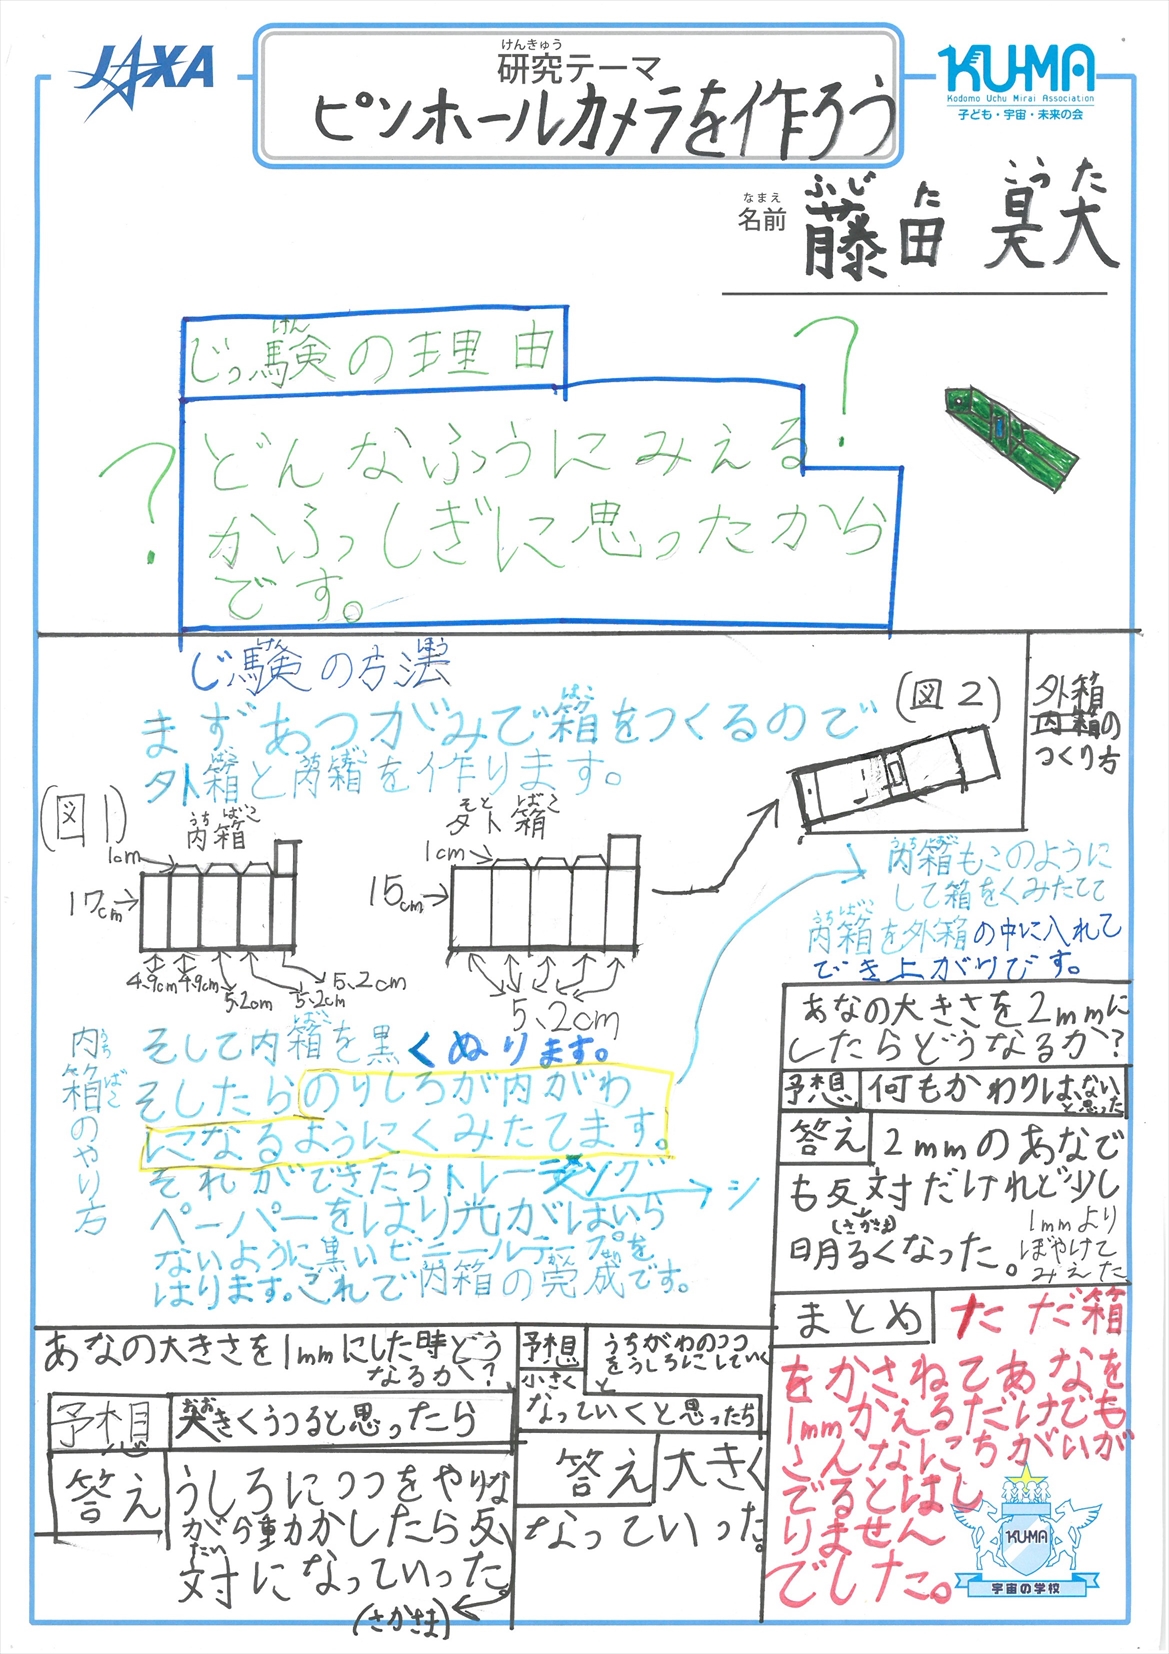 JAXA
けんきゅう
研究テーマ
ピンホールカメラを作ろう
KU-MA
Kodomo Uchu Mirai Association
子ども・宇宙・未来の会
なまえ
名前
ふじ た こうた
藤田 昊大
けん
じっ験の理由
?
?
どんなふうにみえる
かふっしぎに思ったから
です。
けん ほう
じ験の方法
ばこ
まずあつがみで箱をつくるので
外箱と内箱を作ります。
(図1)
うち ばこ
内箱
1cm
17cm
4.9cm 4.9cm 5.2cm 5.2cm 5.2cm
そと ばこ
外箱
1cm
15cm
5.2cm
(図2)
外箱
内箱の
つくり方
内箱もこのように
して箱をくみたてて
内箱を外箱の中に入れて
でき上がりです。
うち ばこ
内箱のやり方
そして内箱を黒くぬります。
そしたらのりしろが内がわ
になるようにくみたてます。
それができたらトレーシング
シ
ペーパーをはり光がはいら
ないように黒いビニールテープを
はります。これで内箱の完成です。
あなの大きさを2mmに
したらどうなるか?
予想
何もかわりは、ない
と思った
答え
2mmのあなで
も反対だけれど少し
(さかさま)
明るくなった。
1mmより
ぼやけて
みえた
あなの大きさを1mmにした時どう
なるか?
予想
おお
大きくうつると思ったら
答え
うしろにつつをやりな
がら動かしたら反
たい
対になっていった。
(さかさま)
予想
うちがわのつつ
をうしろにしていく
と
小さく
なっていくと思ったら
答え
大きく
なっていった。
まとめ
ただ箱
をかさねてあなを
1mmかえるだけでも
こんなにちがいが
でるとはし
りません
でした。
KUMA
宇宙の学校